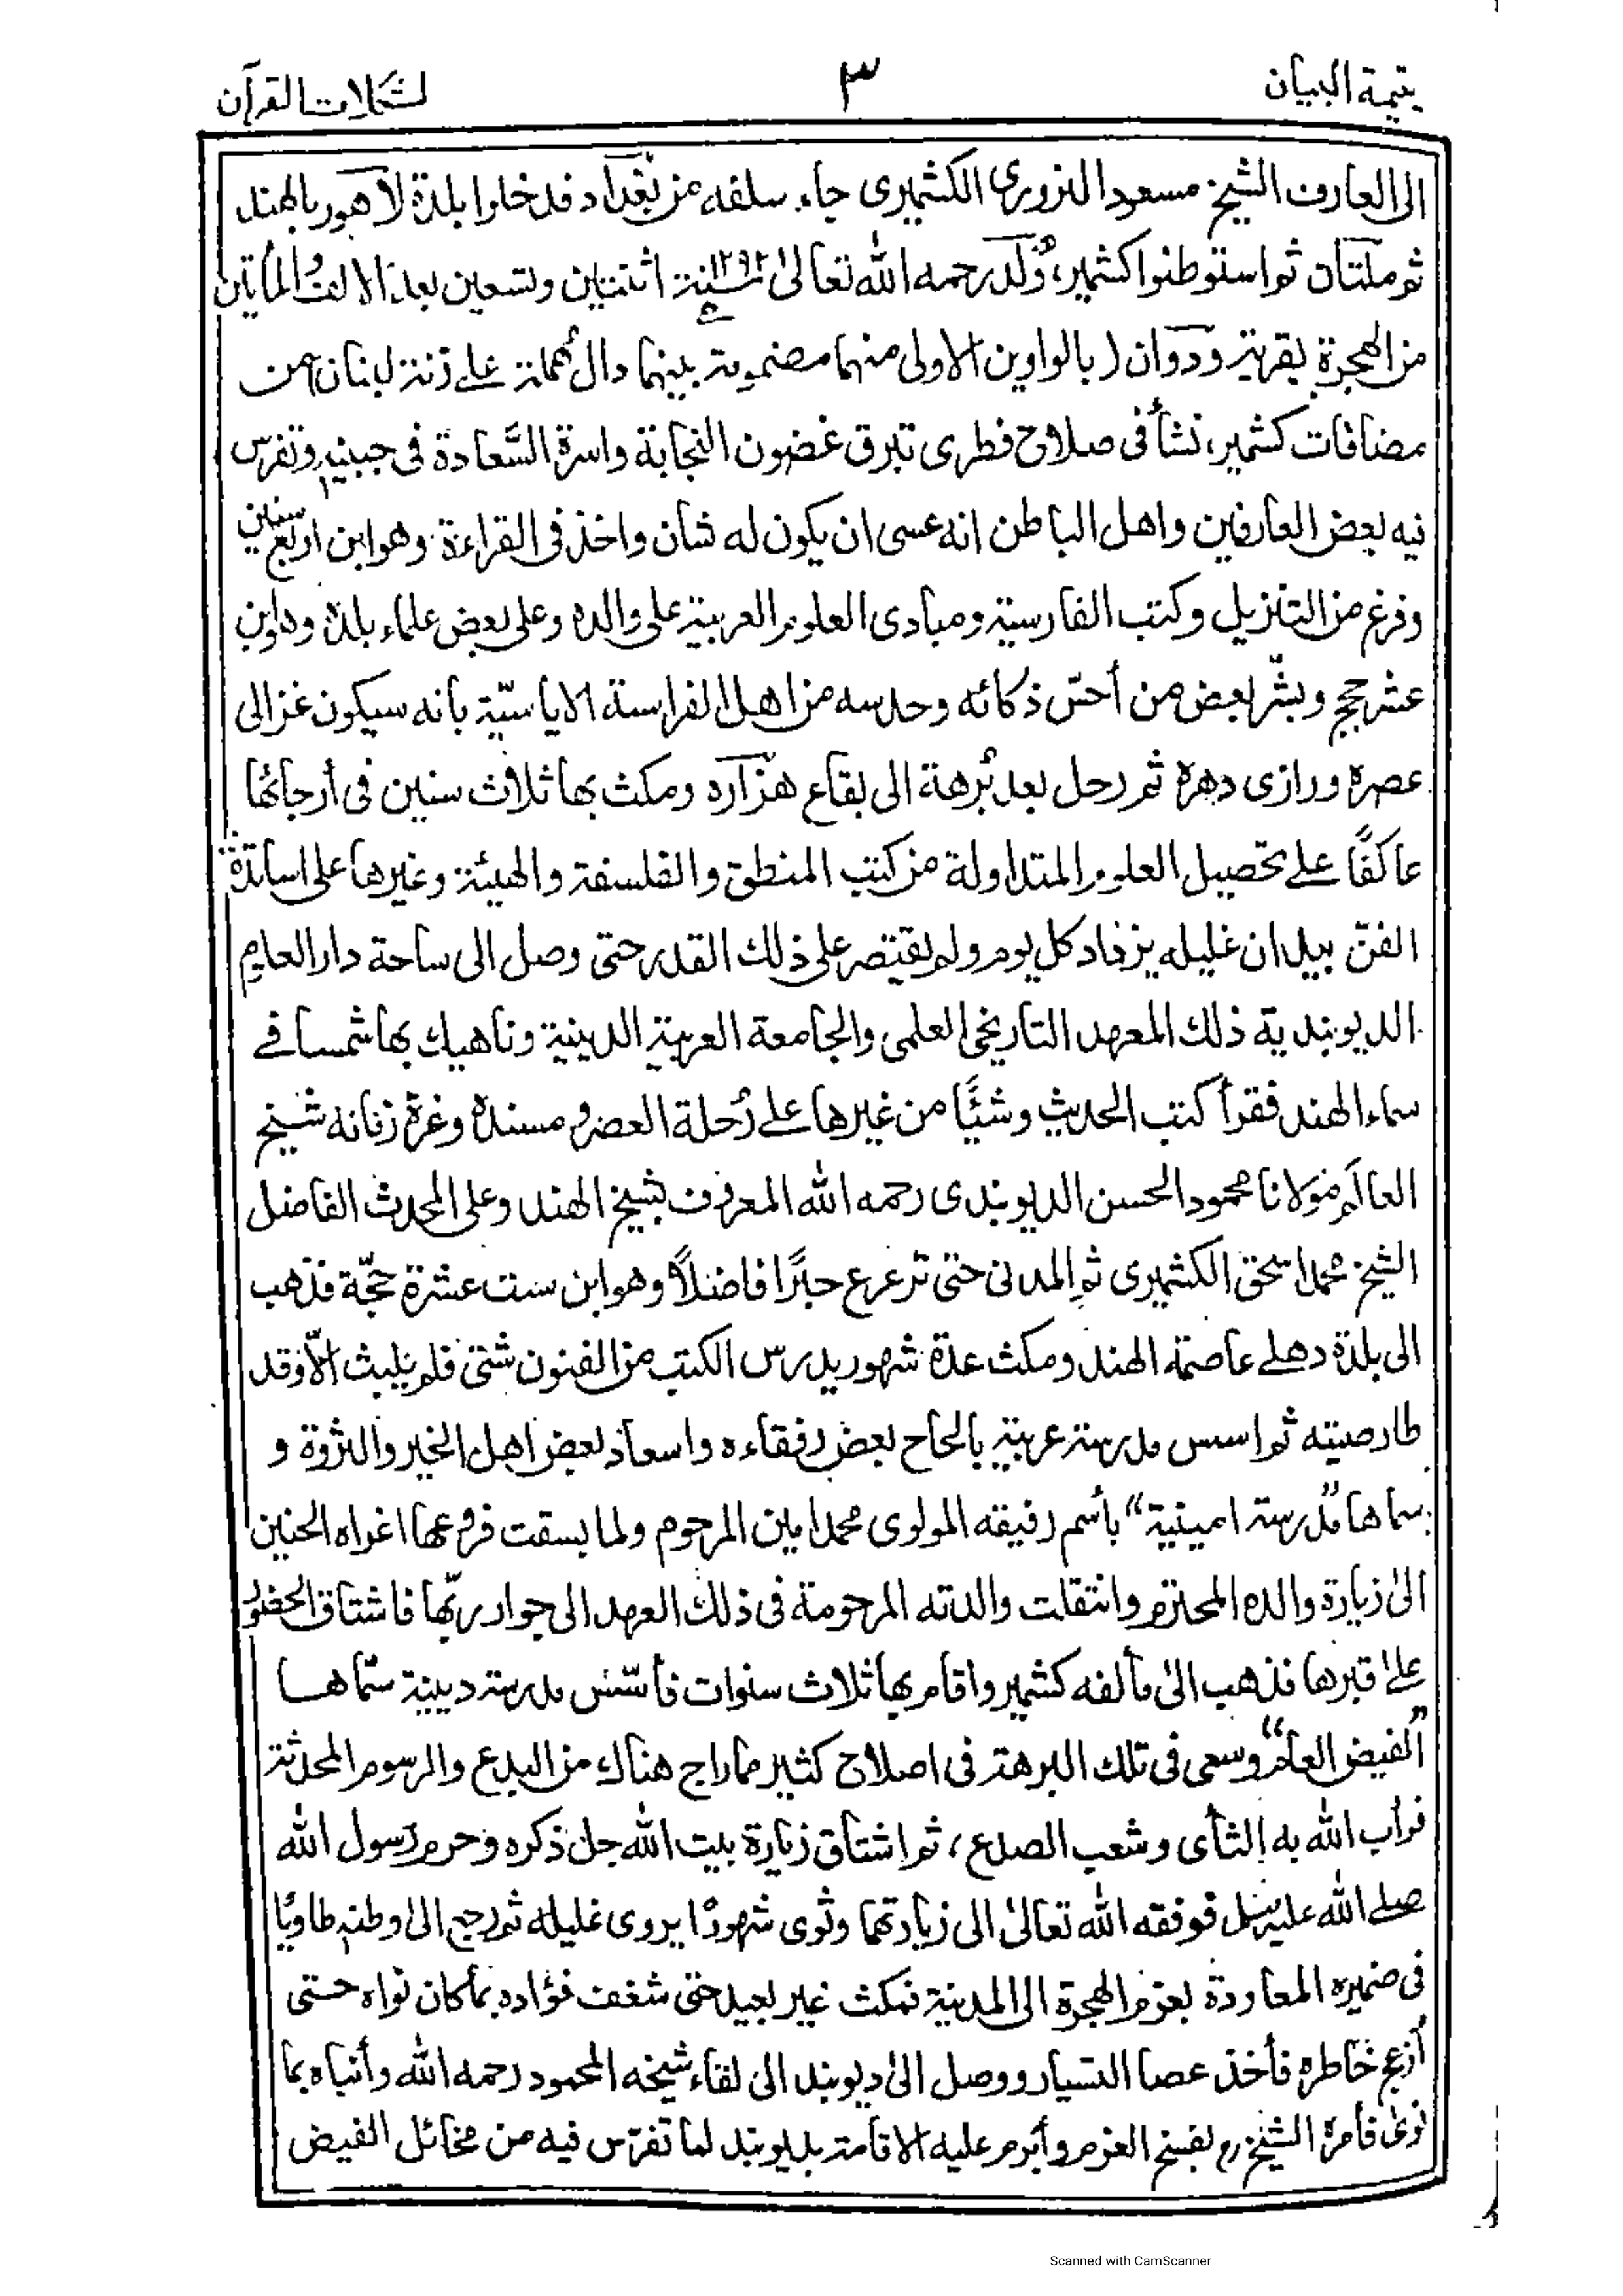 يتيمة البيان
٣
لمشكلات القرآن
الى العارف الشيخ مسعود النروري الكشميرى جاء سلفه من بغداد فدخلوا بلدة لاهور بالهند
ثم ملتان ثم استوطنوا كشمير، وُلد رحمه الله تعالىٰ سنة ١٢٩٢ اثنتين وتسعين بعد الالف والمأتين
من الهجرة بقرية ودوان (بالواوين الاولى منهما مضمومة بينهما دال مُهملة على زنة لبنان) من
مضافات كشمير، نشأ فى صلاح فطرى تبرق غضون النجابة واسرة السَّعادة فى جبينه وتفرس
فيه بعض العارفين واهل الباطن انه عسى ان يكون له شأن واخذ فى القراءة وهو ابن اربع سنين
وفرغ من التنزيل وكتب الفارسية ومبادى العلوم العربية على والده وعلى بعض علماء بلده وهو ابن
عشر حجج وبشّر بعض من أحسّ ذكائه وحدسه من اهل الفراسة الاياسيّة بأنه سيكون غزالى
عصره ورازى دهره ثم رحل بعد بُرهة الى بقاع هزاره ومكث بها ثلاث سنين فى أرجائها
عاكفًا على تحصيل العلوم المتداولة من كتب المنطق والفلسفة والهيئة وغيرها على اساتذة
الفنّ بيد ان غليله يزداد كل يوم ولم يقتصر على ذلك القدر حتى وصل الى ساحة دار العلوم
الديوبندية ذلك المعهد التاريخى العلمى والجامعة العربية الدينية وناهيك بها شمسا فى
سماء الهند فقرأ كتب الحديث وشيئًا من غيرها على رُحلة العصر ومسنده وغرة زمانه شيخ
العالَم مولانا محمود الحسن الديوبندى رحمه الله المعروف بشيخ الهند وعلى المحدث الفاضل
الشيخ محمد اسحٰق الكشميرى ثم المدنى حتى ترعرع حبرًا فاضلاً وهو ابن ست عشرة حجّة فذهب
الى بلدة دهلى عاصمة الهند ومكث عدة شهور يدرس الكتب من الفنون شتى فلم يلبث الاّ وقد
طار صيته ثم اسس مدرسة عربية بالحاح بعض رفقاءه واسعاد بعض اهل الخير والثروة و
سماها "مدرسة امينية" بأسم رفيقه المولوى محمد امين المرحوم ولما بسقت فروعها اغراه الحنين
الىٰ زيارة والده المحترم وانتقلت والدته المرحومة فى ذلك العهد الى جوار ربّها فاشتاق الحضور
علىٰ قبرها فذهب الىٰ مألفه كشمير واقام بها ثلاث سنوات فأسّس مدرسة دينية سمّاها
"الفيض العام" وسعى فى تلك البرهة فى اصلاح كثير مما راج هناك من البدع والرسوم المحدثة
فرأب الله به الثأى وشعب الصدع، ثم اشتاق زيارة بيت الله جل ذكره وحرم رسول الله
صلى الله عليه وسلم فوفقه الله تعالىٰ الى زيارتهما وثوى شهورًا يروى غليله ثم رجع الىٰ وطنه طاويًا
فى ضميره المعاودة بعزم الهجرة الى المدينة فمكث غير بعيد حتى شغف فؤاده بما كان نواه حتى
أزعج خاطره فأخذ عصا التسيار ووصل الىٰ ديوبند الىٰ لقاء شيخه المحمود رحمه الله وأنباه بما
نوى فأمره الشيخ رح بفسخ العزم وأبرم عليه الاقامة بديوبند لما تفرّس فيه من مخائل الفيض
Scanned with CamScanner